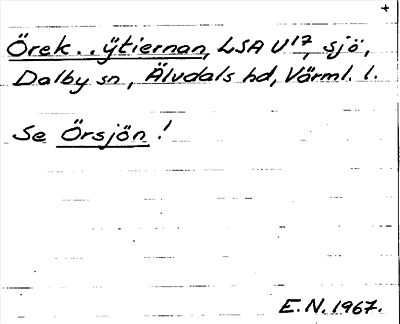 +
Örek..ÿtiernan, LSA U17, sjö,
Dalby sn, Älvdals hd, Värml. l.
Se Örsjön!
E.N. 1967.